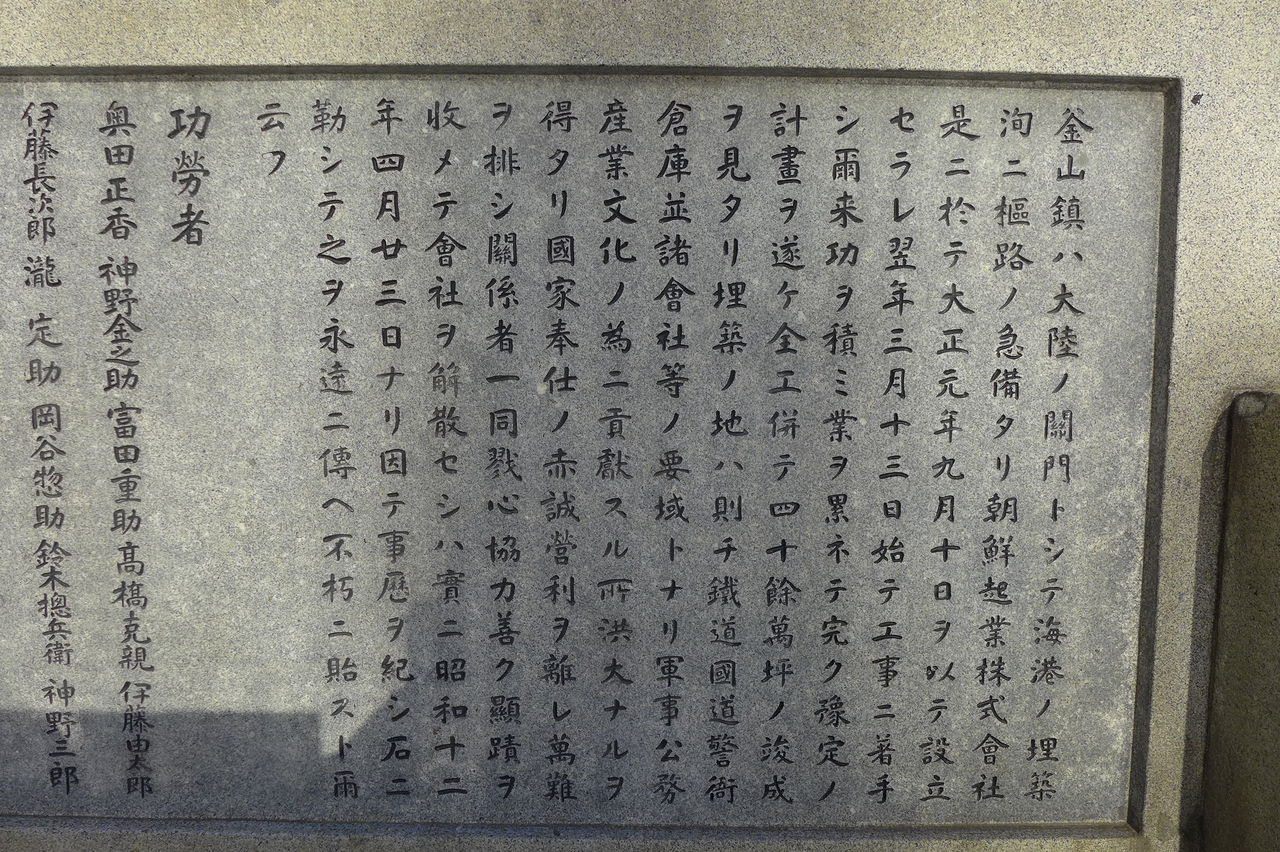 釜山鎮ハ大陸ノ關門トシテ海港ノ埋築
洵ニ樞路ノ急備タリ朝鮮起業株式會社
是ニ於テ大正元年九月十日ヲ以テ設立
セラレ翌年三月十三日始テ工事ニ著手
シ爾来功ヲ積ミ業ヲ累ネテ完ク豫定ノ
計畫ヲ遂ケ全工併テ四十餘萬坪ノ竣成
ヲ見タリ埋築ノ地ハ則チ鐵道國道警衙
倉庫並諸會社等ノ要域トナリ軍事公務
産業文化ノ為ニ貢獻スル所洪大ナルヲ
得タリ國家奉仕ノ赤誠營利ヲ離レ萬難
ヲ排シ關係者一同戮心協力善ク顯蹟ヲ
收メテ會社ヲ解散セシハ實ニ昭和十二
年四月廿三日ナリ因テ事歴ヲ紀シ石ニ
勒シテ之ヲ永遠ニ傳ヘ不朽ニ貽スト爾
云フ
功勞者
奥田正香 神野金之助 富田重助 高橋克親 伊藤由太郎
伊藤長次郎 瀧定助 岡谷惣助 鈴木摠兵衛 神野三郎